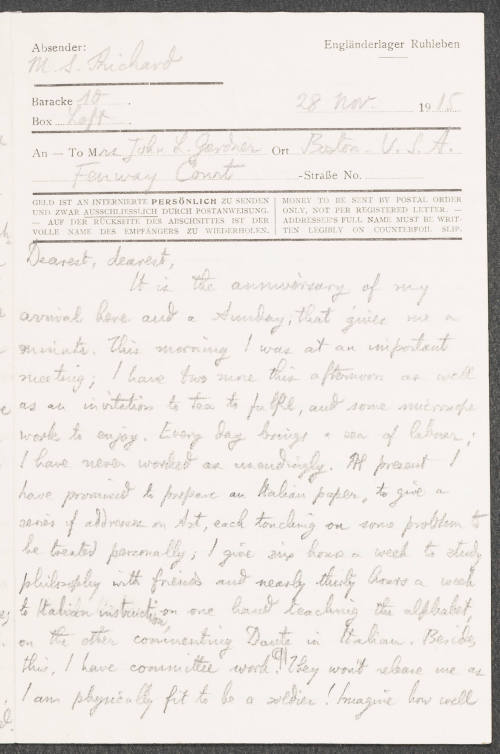 Absender:
M. S. Prichard
Engländerlager Ruhleben
Baracke 10.
Box Loft.
28 Nov. 1915
An — To Mrs John L. Gardner Ort Boston U.S.A.
Fenway Court -Straße No.
GELD IST AN INTERNIERTE PERSÖNLICH ZU SENDEN
UND ZWAR AUSSCHLIESSLICH DURCH POSTANWEISUNG.
— AUF DER RÜCKSEITE DES ABSCHNITTES IST DER
VOLLE NAME DES EMPFÄNGERS ZU WIEDERHOLEN.
MONEY TO BE SENT BY POSTAL ORDER
ONLY, NOT PER REGISTERED LETTER. —
ADDRESSEE'S FULL NAME MUST BE WRIT-
TEN LEGIBLY ON COUNTERFOIL SLIP.
Dearest, dearest,
It is the anniversary of my
arrival here and a Sunday, that gives me a
minute. This morning I was at an important
meeting; I have two more this afternoon as well
as an invitation to tea to fulfil, and some microscope
work to enjoy. Every day brings a sea of labour;
I have never worked as unendingly. At present I
have promised to prepare an Italian paper, to give a
series of addresses on Art, each touching on some problem to
be treated personally; I give six hours a week to study
philosophy with friends and nearly thirty hours a week
to Italian instruction, on one hand teaching the alphabet,
on the other commenting Dante in Italian. Besides
this, I have committee work! They won't release me as
I am physically fit to be a soldier! Imagine how well